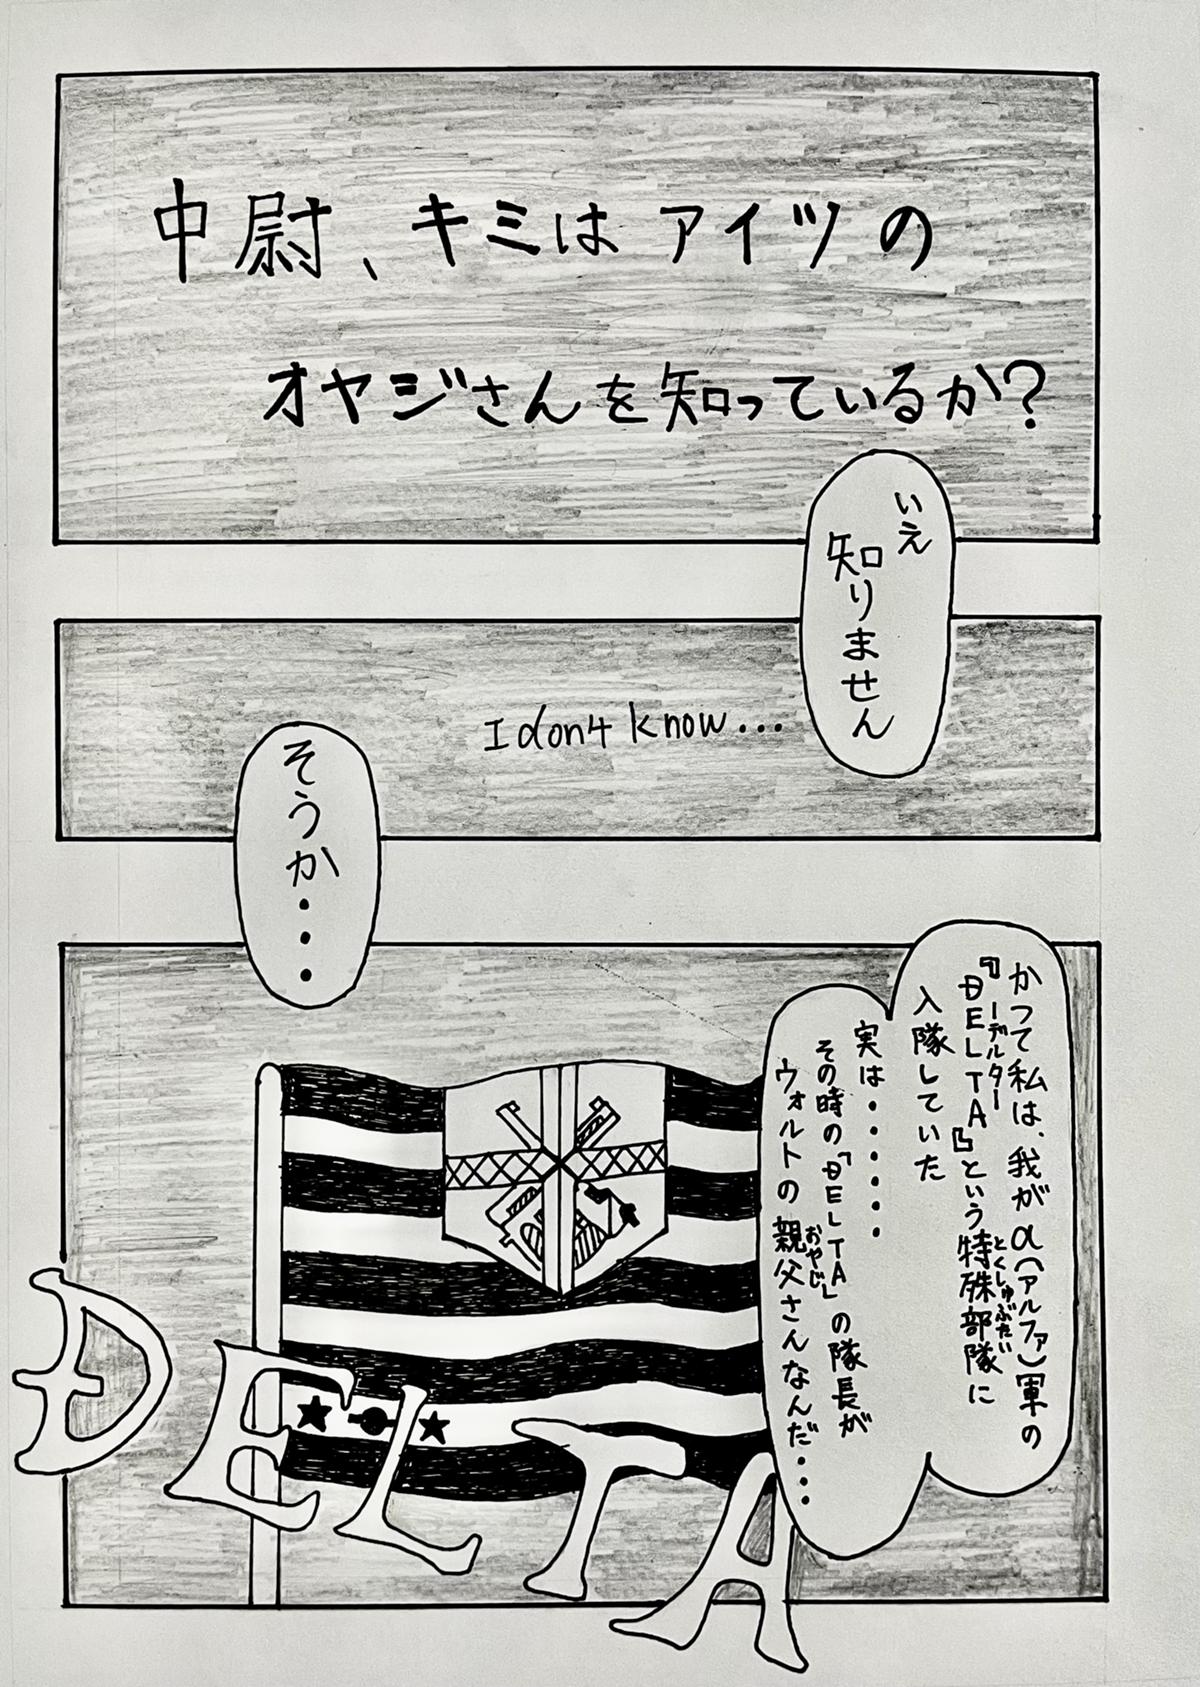 中尉、キミはアイツの
オヤジさんを知っているか?
いえ
知りません
I don4 know...
そうか・・・
かつて私は、我がα(アルファ)軍の
『ĐELTA』という特殊部隊に
ーデルター
とくしゅぶたい
入隊していた
実は・・・・・・
その時の「ĐELTA」の隊長が
ウォルトの親父さんなんだ・・・
おやじ
ĐELTA